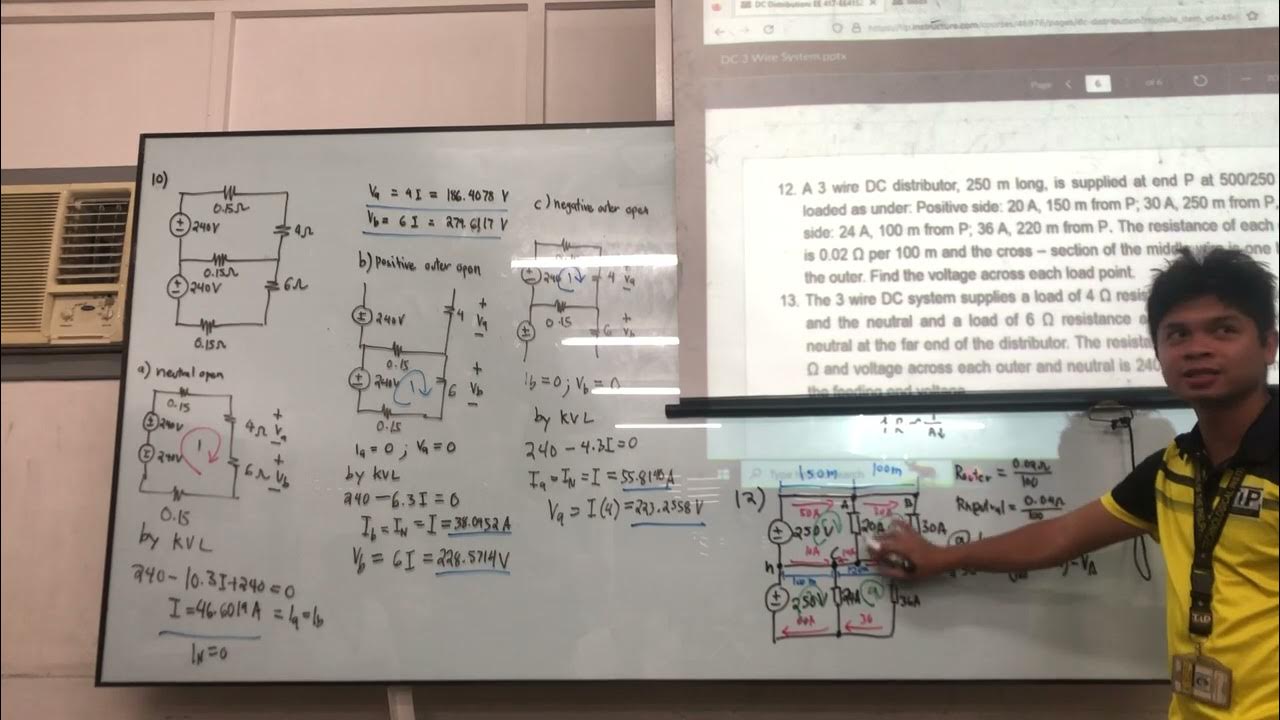 10)
0.15Ω
240V
4Ω
0.15Ω
240V
6Ω
0.15Ω
a) neutral open
0.15
240V
4Ω
+
Va
-
1
240V
6Ω
+
Vb
-
0.15
by KVL
240 - 10.3I + 240 = 0
I = 46.6019A = Ia = Ib
IN = 0
Va = 4I = 186.4078 V
Vb = 6I = 279.6117 V
b) positive outer open
240V
4
+
Va
-
0.15
240V
1
6
+
Vb
-
0.15
Ia = 0 ; Va = 0
by KVL
240 - 6.3I = 0
Ib = IN = I = 38.0952 A
Vb = 6I = 228.5714V
c) negative outer open
240
1
4
+
Va
-
0.15
6
+
Vb
-
Ib = 0 ; Vb = 0
by KVL
240 - 4.3I = 0
Ia = IN = I = 55.8140 A
Va = I(4) = 223.2558 V
DC Distribution: EE 417-
DC 3 Wire System.pptx
Page
6
of 6
12. A 3 wire DC distributor, 250 m long, is supplied at end P at 500/250
loaded as under: Positive side: 20 A, 150 m from P; 30 A, 250 m from P.
side: 24 A, 100 m from P; 36 A, 220 m from P. The resistance of each
is 0.02 Ω per 100 m and the cross – section of the middle wire is one
the outer. Find the voltage across each load point.
13. The 3 wire DC system supplies a load of 4 Ω resis
and the neutral and a load of 6 Ω resistance
neutral at the far end of the distributor. The resista
Ω and voltage across each outer and neutral is 240
the feeding end voltage
12)
150m
100m
Router = 0.02Ω/100
Rneutral = 0.04Ω/100
50A
A
30A
B
250V
20A
30A
10A
C
n
100m
120m
250V
24A
36A
60A
36
TIP